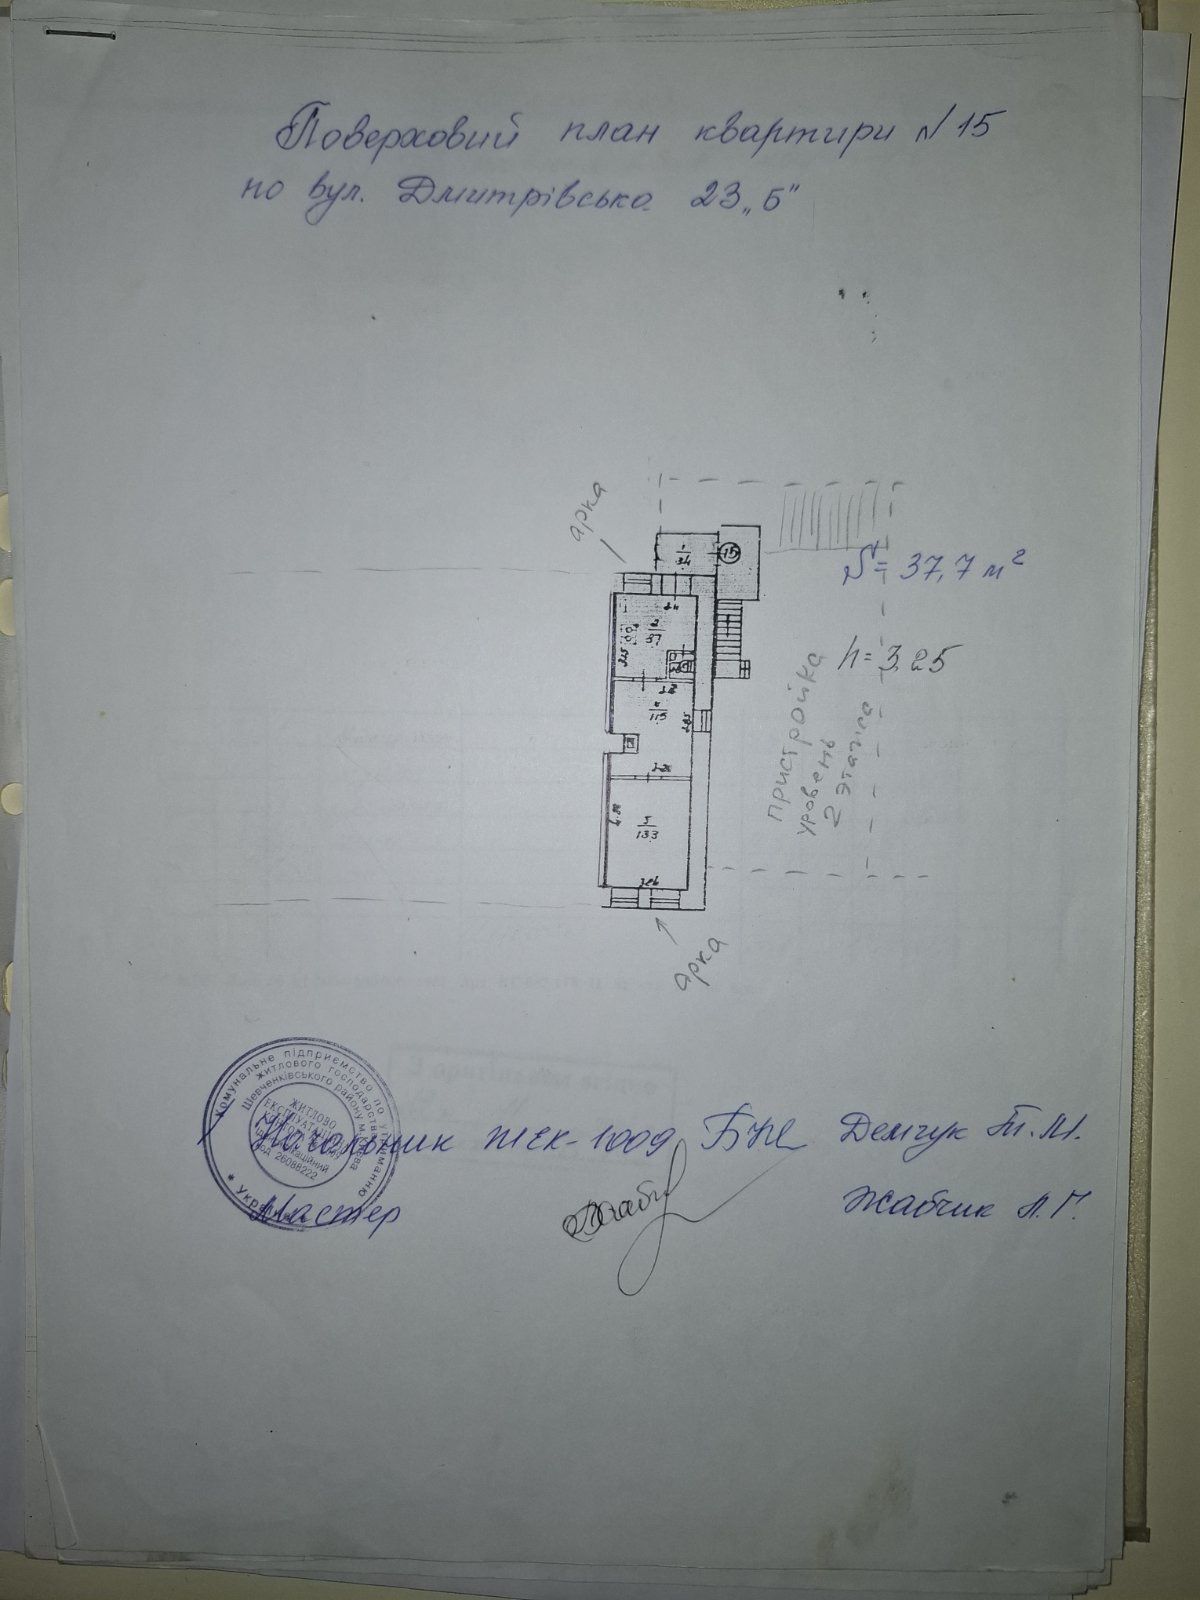 Поверховий план квартири N 15
по вул. Дмитрівська 23 „Б"
арка
1
3.4
15
S = 37,7 м²
h = 3.25
2.4
3.25
4
11.5
2.85
5
13.3
4.28
3.06
пристройка
уровень
2 этажа
арка
Комунальне підприємство по утриманню
житлового господарства
Шевченківського району м. Києва
ЖИТЛОВО
ЕКСПЛУАТАЦІЙНА
КОНТОРА
Ідентифікаційний
код 26088222
* Україна
Начальник ЖЕК-1009 Демчук Т.М.
Мастер Жабчик Л.Г.